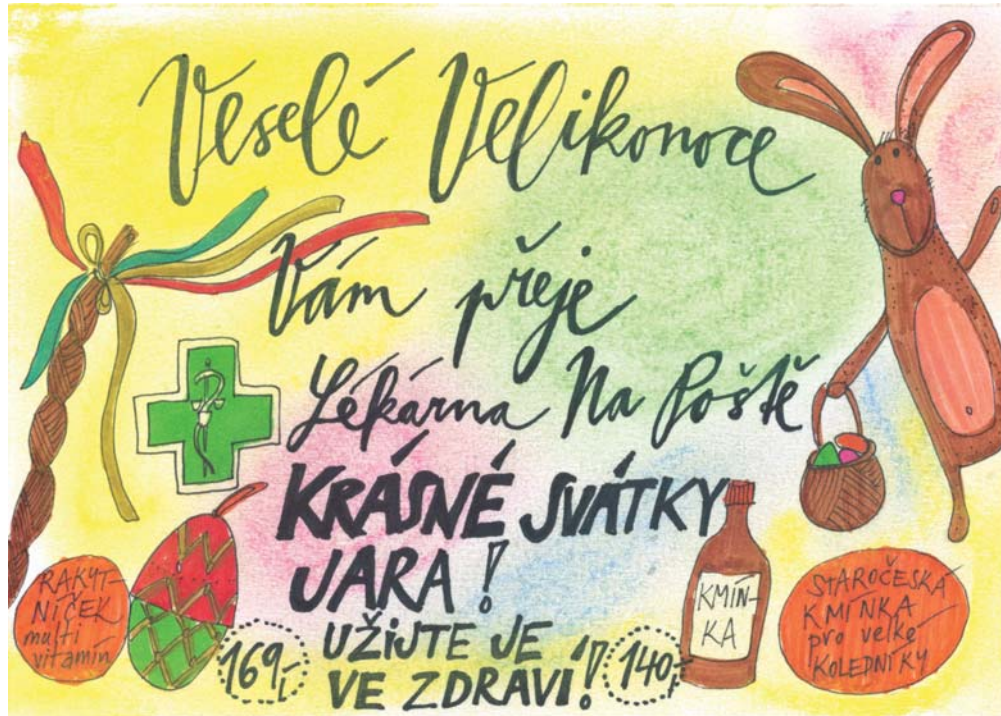 Veselé Velikonoce
Vám přeje
Lékárna Na Poště
KRÁSNÉ SVÁTKY
JARA!
UŽIJTE JE
VE ZDRAVÍ!
RAKYT-
NÍČEK
multi
vitamín
169,-
140,-
KMÍN-
KA
STAROČESKÁ
KMÍNKA
pro velké
KOLEDNÍKY